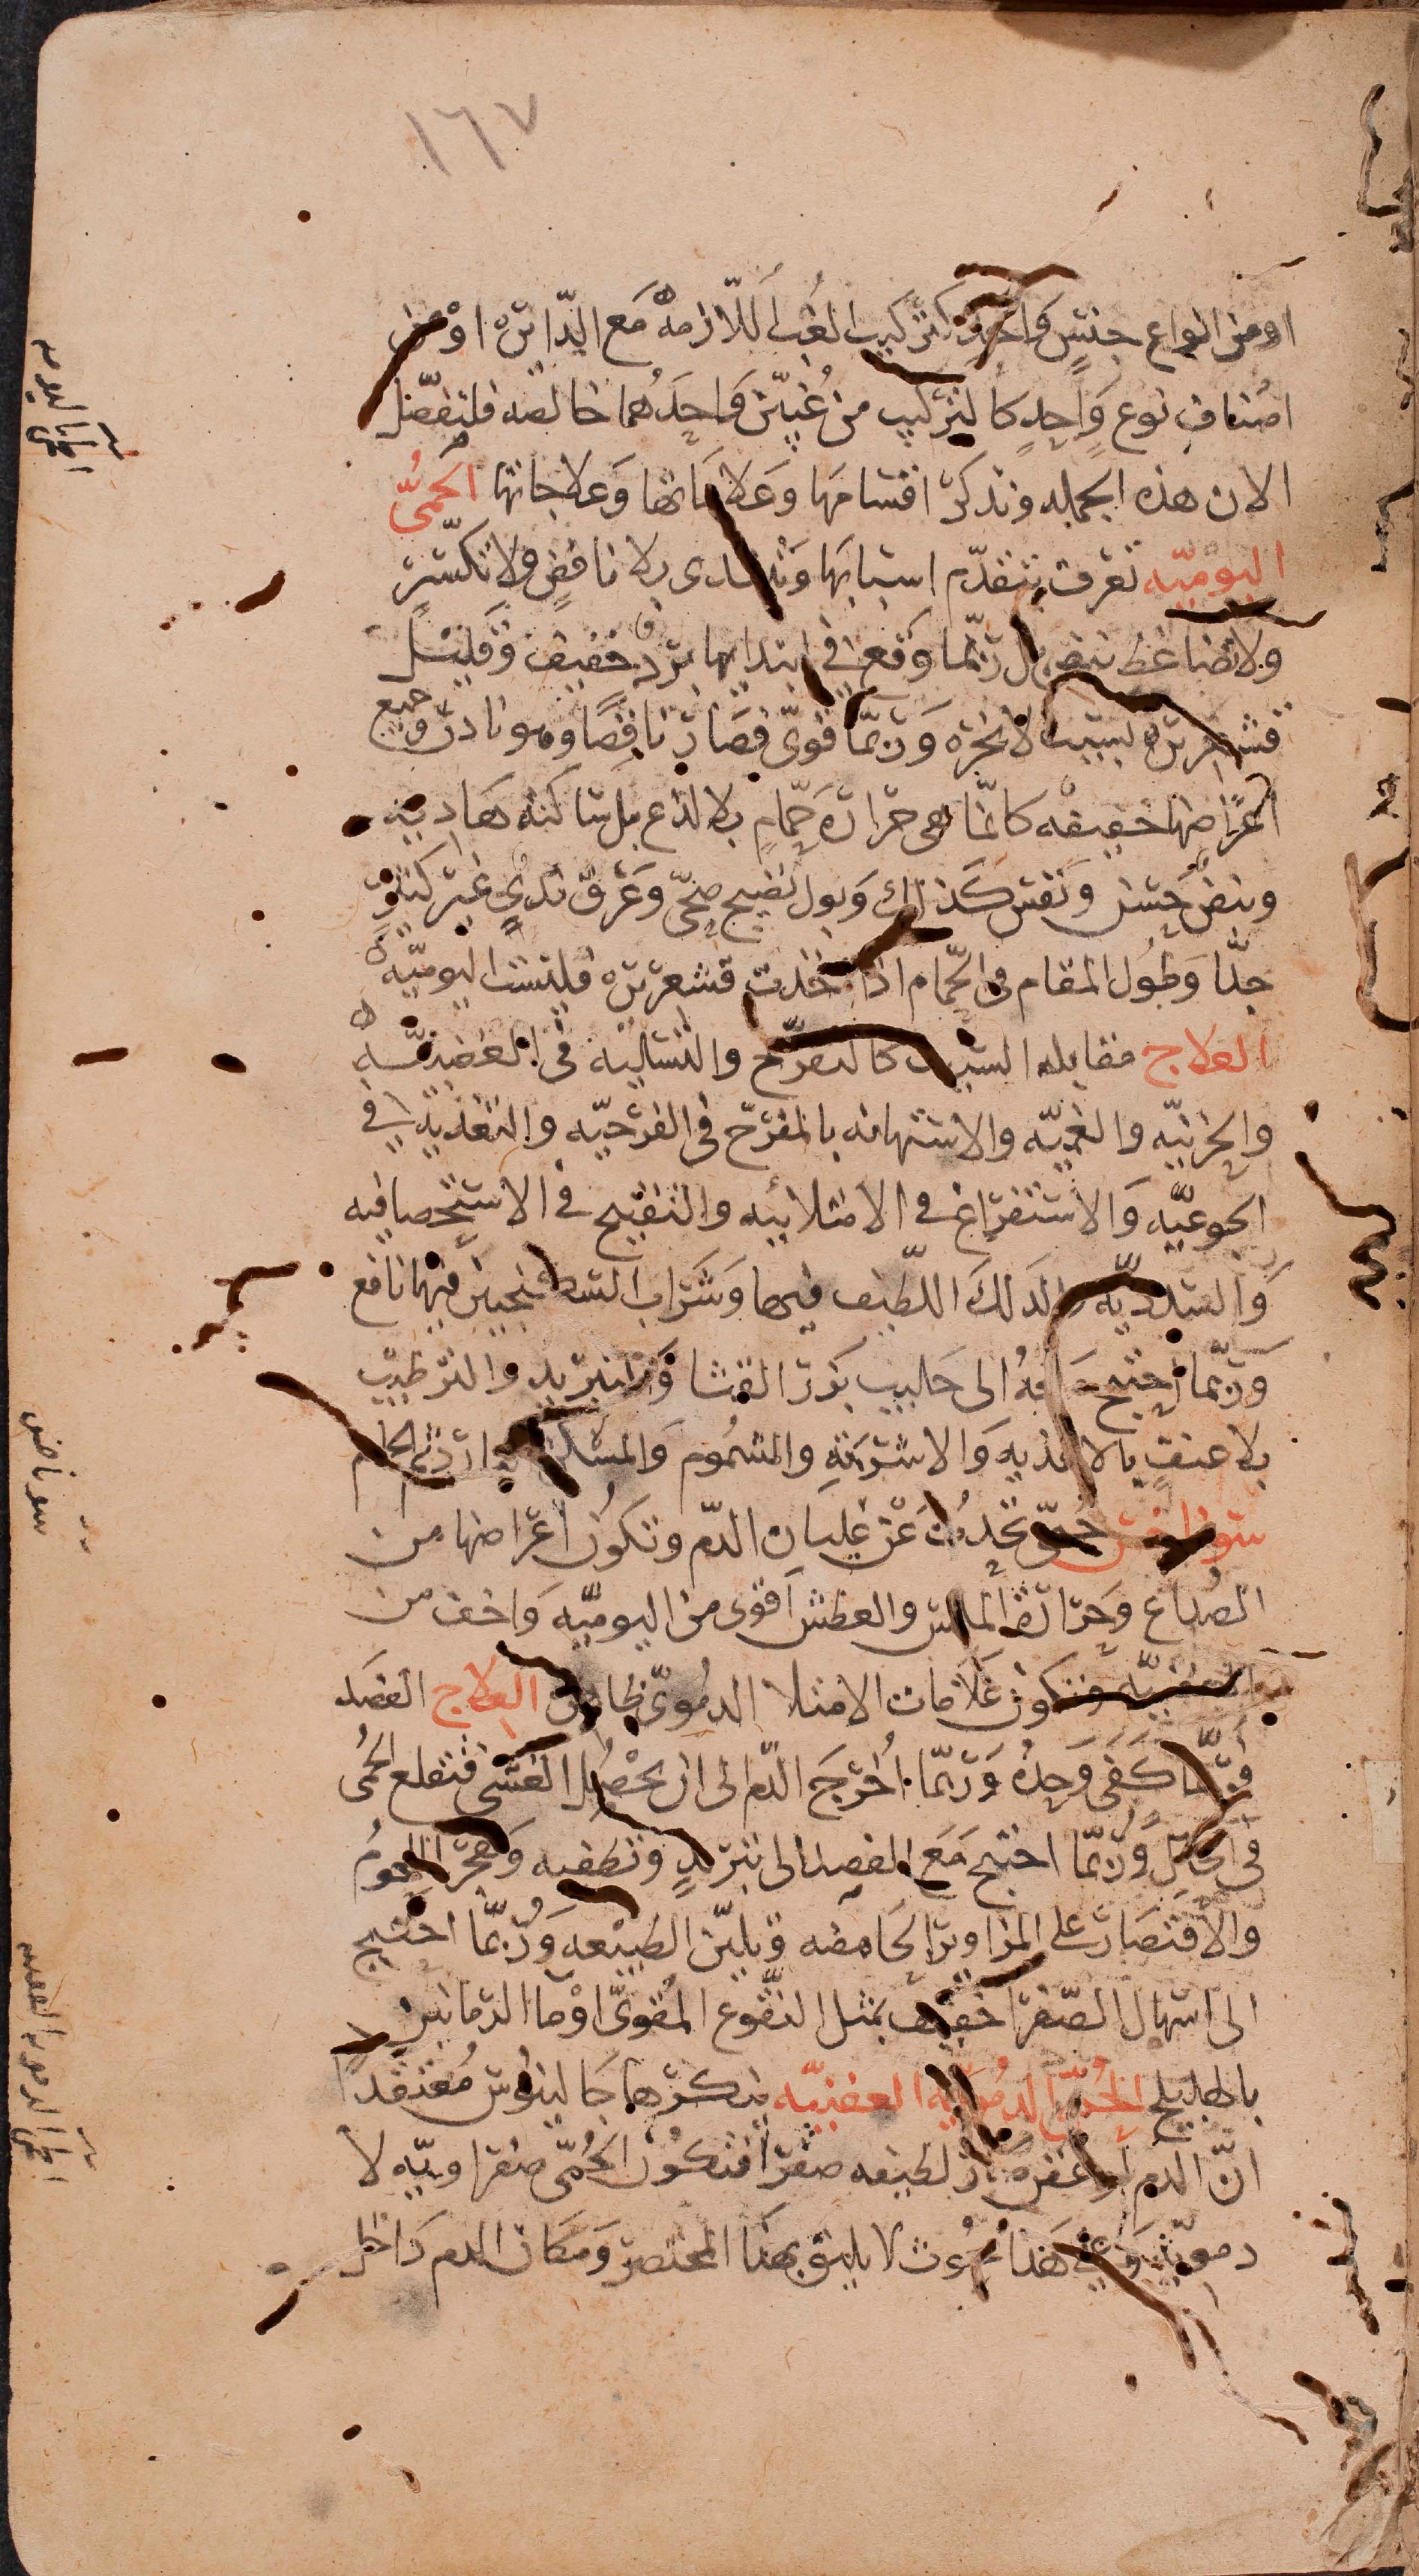 ١٦٧
او من انواع جنسٍ واحد كتركيب الغب اللازمة مع الدايرة او من
اصناف نوع واحدٍ كالتركيب من غبين واحدهما خالصه فلنفصّل
الان هذه الجمله ونذكر اقسامها وعلاماتها وعلاجاتها الحمى
اليوميّه تعرف بتقدّم اسبابها وتبتدى بلا نافضٍ ولا تكسّرٍ
ولا تضاغط نبض بل ربّما وقع في ابتدايها بردٌ خفيف وقليل
قشعريرة بسبب الابخرة وربّما قوى فصار نافضًا وهو نادر وجميع
اعراضها خفيفه كانّما هى حرارة حمّامٍ بلا لذع بل ساكنه هاديه
ونبض حسن ونفس كذلك وبول نضيج صحّى وعرق ندىٍ غير كثيرٍ
جدّا وطول المقام في الحمّام اذا احدث قشعريرة فليست اليوميّه
العلاج مقابله السبب كالتفرّح والتساليه في الغضبيّه
والحزنيّه والغميّه والاستهانه بالمفرّح في الفرحيّه والتغذيه في
الجوعيّه والاستفراغ في الامتلائيه والتفتيح في الاستحصافيه
والسدديّه والدلك اللطيف فيها وشراب السكنجبين فيها نافع
وربّما احتيج معه الى حليب بزر القثا والتبريد والترطيب
بلا عنفٍ بالاغذيه والاشربه والمشموم والمسكن البارد ثم الحمام
سونوخس حمّى تحدث عن غليان الدّم وتكون اعراضها من
الصداع وحرارة الملمس والعطش اقوى من اليوميّه واخف من
العفنيّه وتكون علامات الامتلا الدموىّ ظاهرة العلاج الفصد
وربّما كفى وحده وربّما اُخرج الدّم الى ان يحصل الغشى فتقلع الحمى
في الحال وربّما احتيج مع الفصد الى تبريدٍ وتطفيه وهجر اللحوم
والاقتصار على المزاوير الحامضه وتليّن الطبيعه وربّما احتيج
الى اسهال الصّفرا خفيف بمثل النقّوع المقوىّ او ما الرمانين
باهليلج الحمّى الدمويه العفنيّه ينكرها جالينوس معتقدًا
انّ الدم اذا عفن صار لطيفه صفرا فتكون الحمّى صفراويّه لا
دمويّه وفي هذا بحوث لا يليق بهذا المختصر ومكان الدم داخل
سونوخس